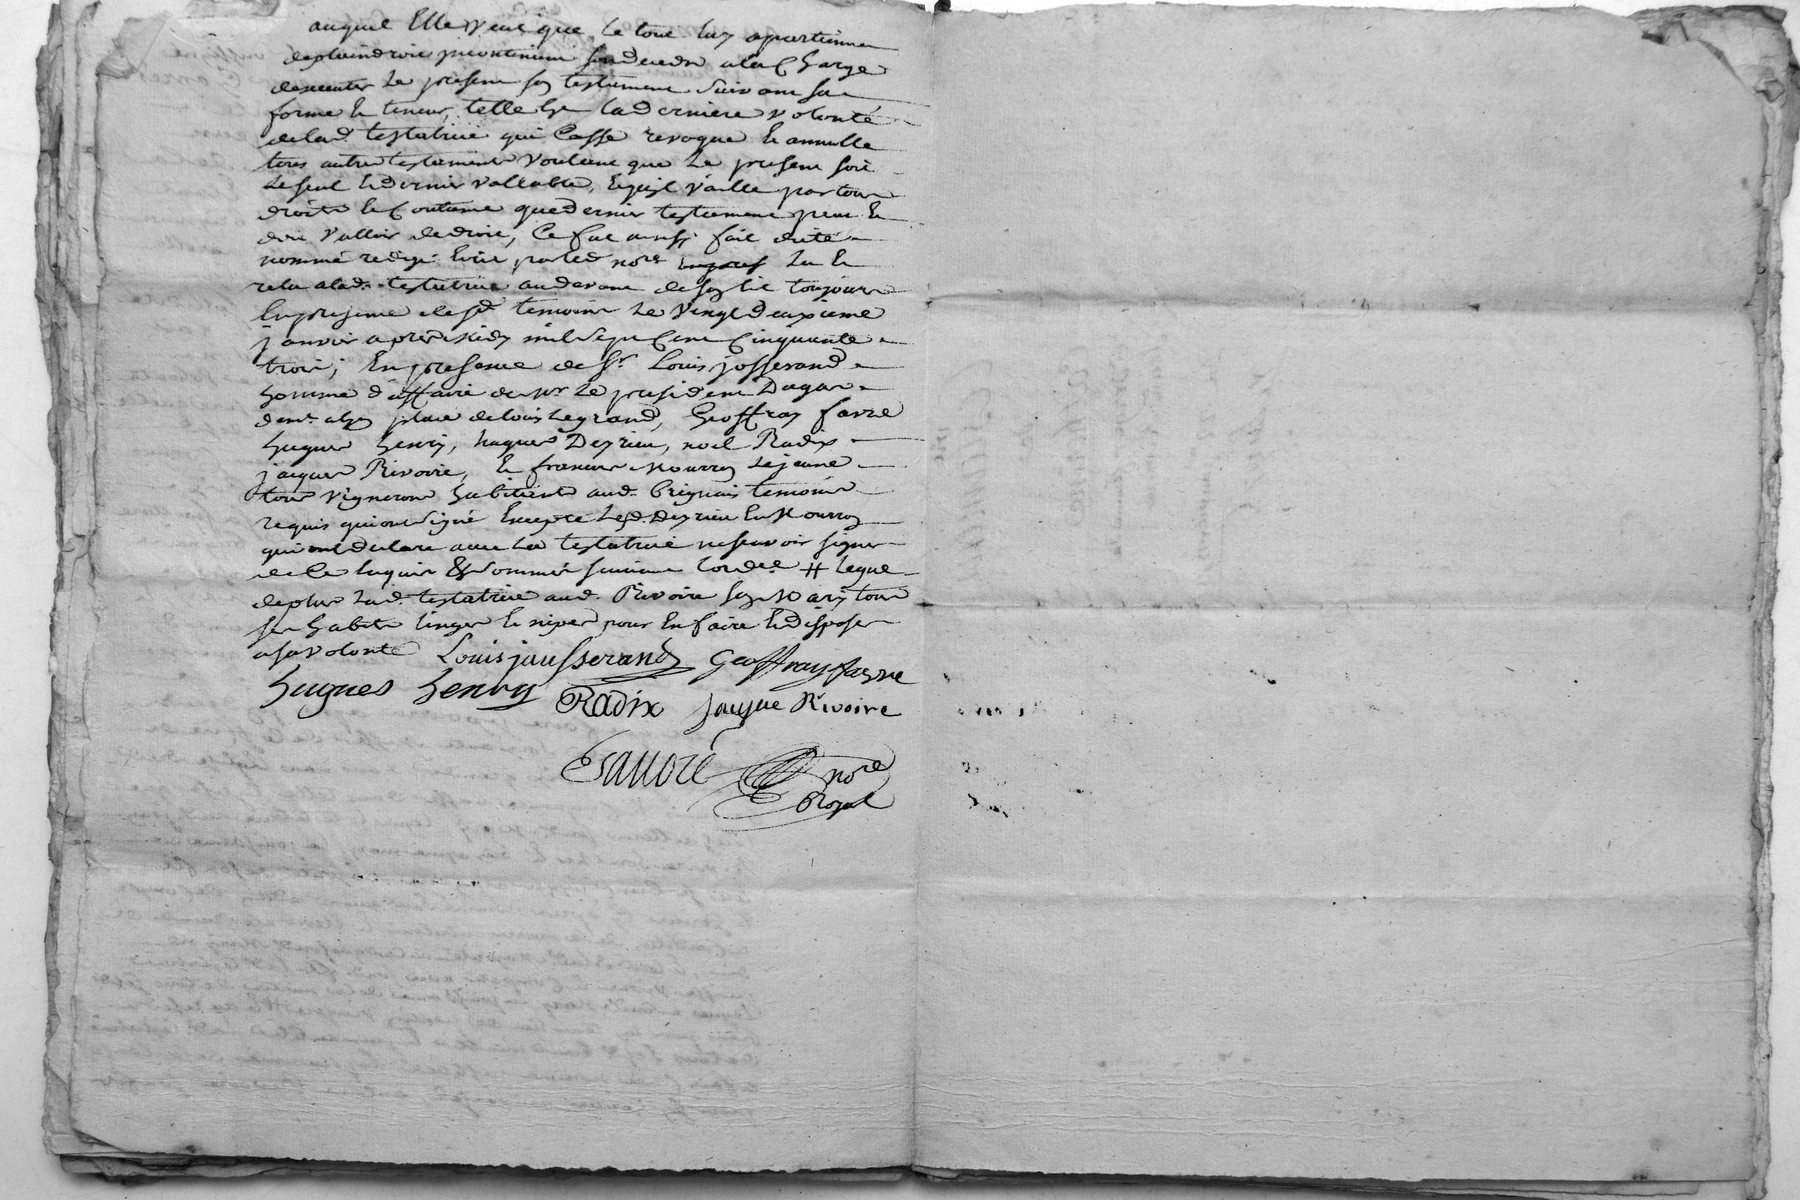 auquel Elle veut que le tout luy apartienne
de plain droit incontinent son deceds a la Charge
dexecuter Le present son testament Suivant sa
forme Et teneur, telle Est la derniere volonté
de lad. testatrice qui Casse revoque Et annulle
tous autres testaments voulant que Le present soit
Le seul Et dernier vallable, Et quil vaille par tous
droits Et Coutume que dernier testament peut Et
doit valloir de droit, Ce fut ainsy fait dicté
nommé redigé Ecrit par led. no.re Lu Et
relu a lad. testatrice au devant de son lit toujours
En presence desd. temoins Le vingt deuxieme
janvier apres Midy mil Sept Cent Cinquante
trois; En presence de Sr. Louis josserand
homme d'affaire de Mr. Le president Dugas
dem.t a Lyon place de Louis Le grand, Geoffray favre
hugues henry, hugues Deyrieu, noel Radix
jacques Rivoire, Et francois Mourron Le jeune
tous vignerons habitants aud. Brignais temoins
requis qui ont signé Excepté Lesd. Deyrieu Et Mourron
qui ont declaré avec La testatrice ne scavoir signer
de ce Enquis & Sommés suivant Lord.ce # Legue
de plus Lad. testatrice aud. Rivoire son Mary tous
ses habits linges Et nipes pour En faire Et disposer
a sa volonté Louis jausserand Geoffray favre
hugues henry Radix jacque Rivoire
no.re
Royal